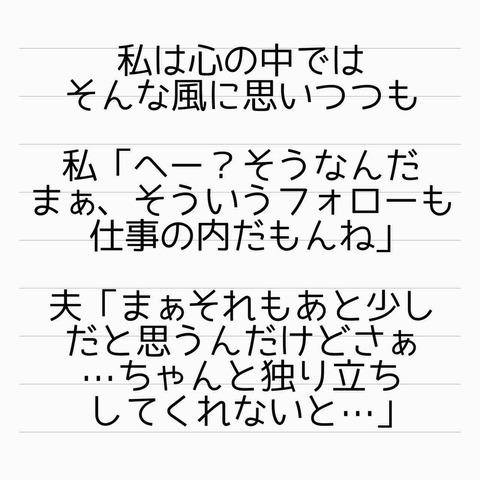 私は心の中では
そんな風に思いつつも
私「へー？そうなんだ
まぁ、そういうフォローも
仕事の内だもんね」
夫「まぁそれもあと少し
だと思うんだけどさぁ
…ちゃんと独り立ち
してくれないと…」